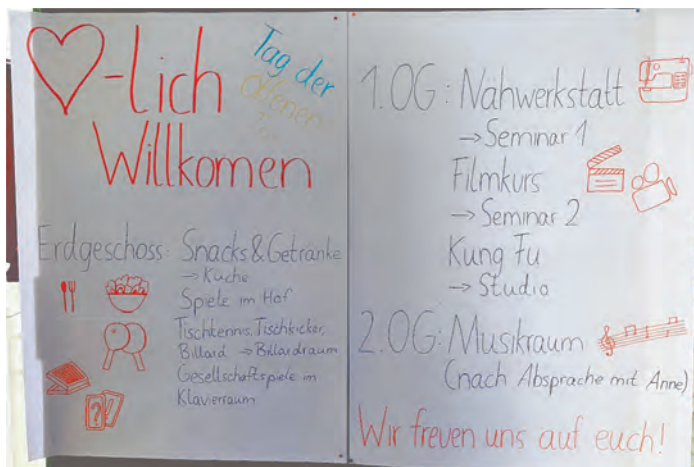 ♡-lich
Willkomen
Tag der
offenen
Tür
Erdgeschoss: Snacks & Getränke
→ Küche
Spiele im Hof
Tischtennis, Tischkicker,
Billard → Billardraum
Gesellschaftspiele im
Klavierraum
1.OG: Nähwerkstatt
→ Seminar 1
Filmkurs
→ Seminar 2
Kung Fu
→ Studio
2.OG: Musikraum
(nach Absprache mit Anne)
Wir freuen uns auf euch!